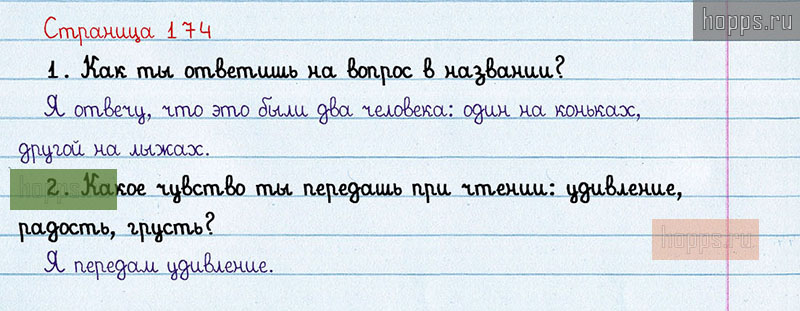 hopps.ru
Страница 174
1. Как ты ответишь на вопрос в названии?
Я отвечу, что это были два человека: один на коньках,
другой на лыжах.
hopps
2. Какое чувство ты передашь при чтении: удивление,
радость, грусть?
hopps.ru
Я передам удивление.